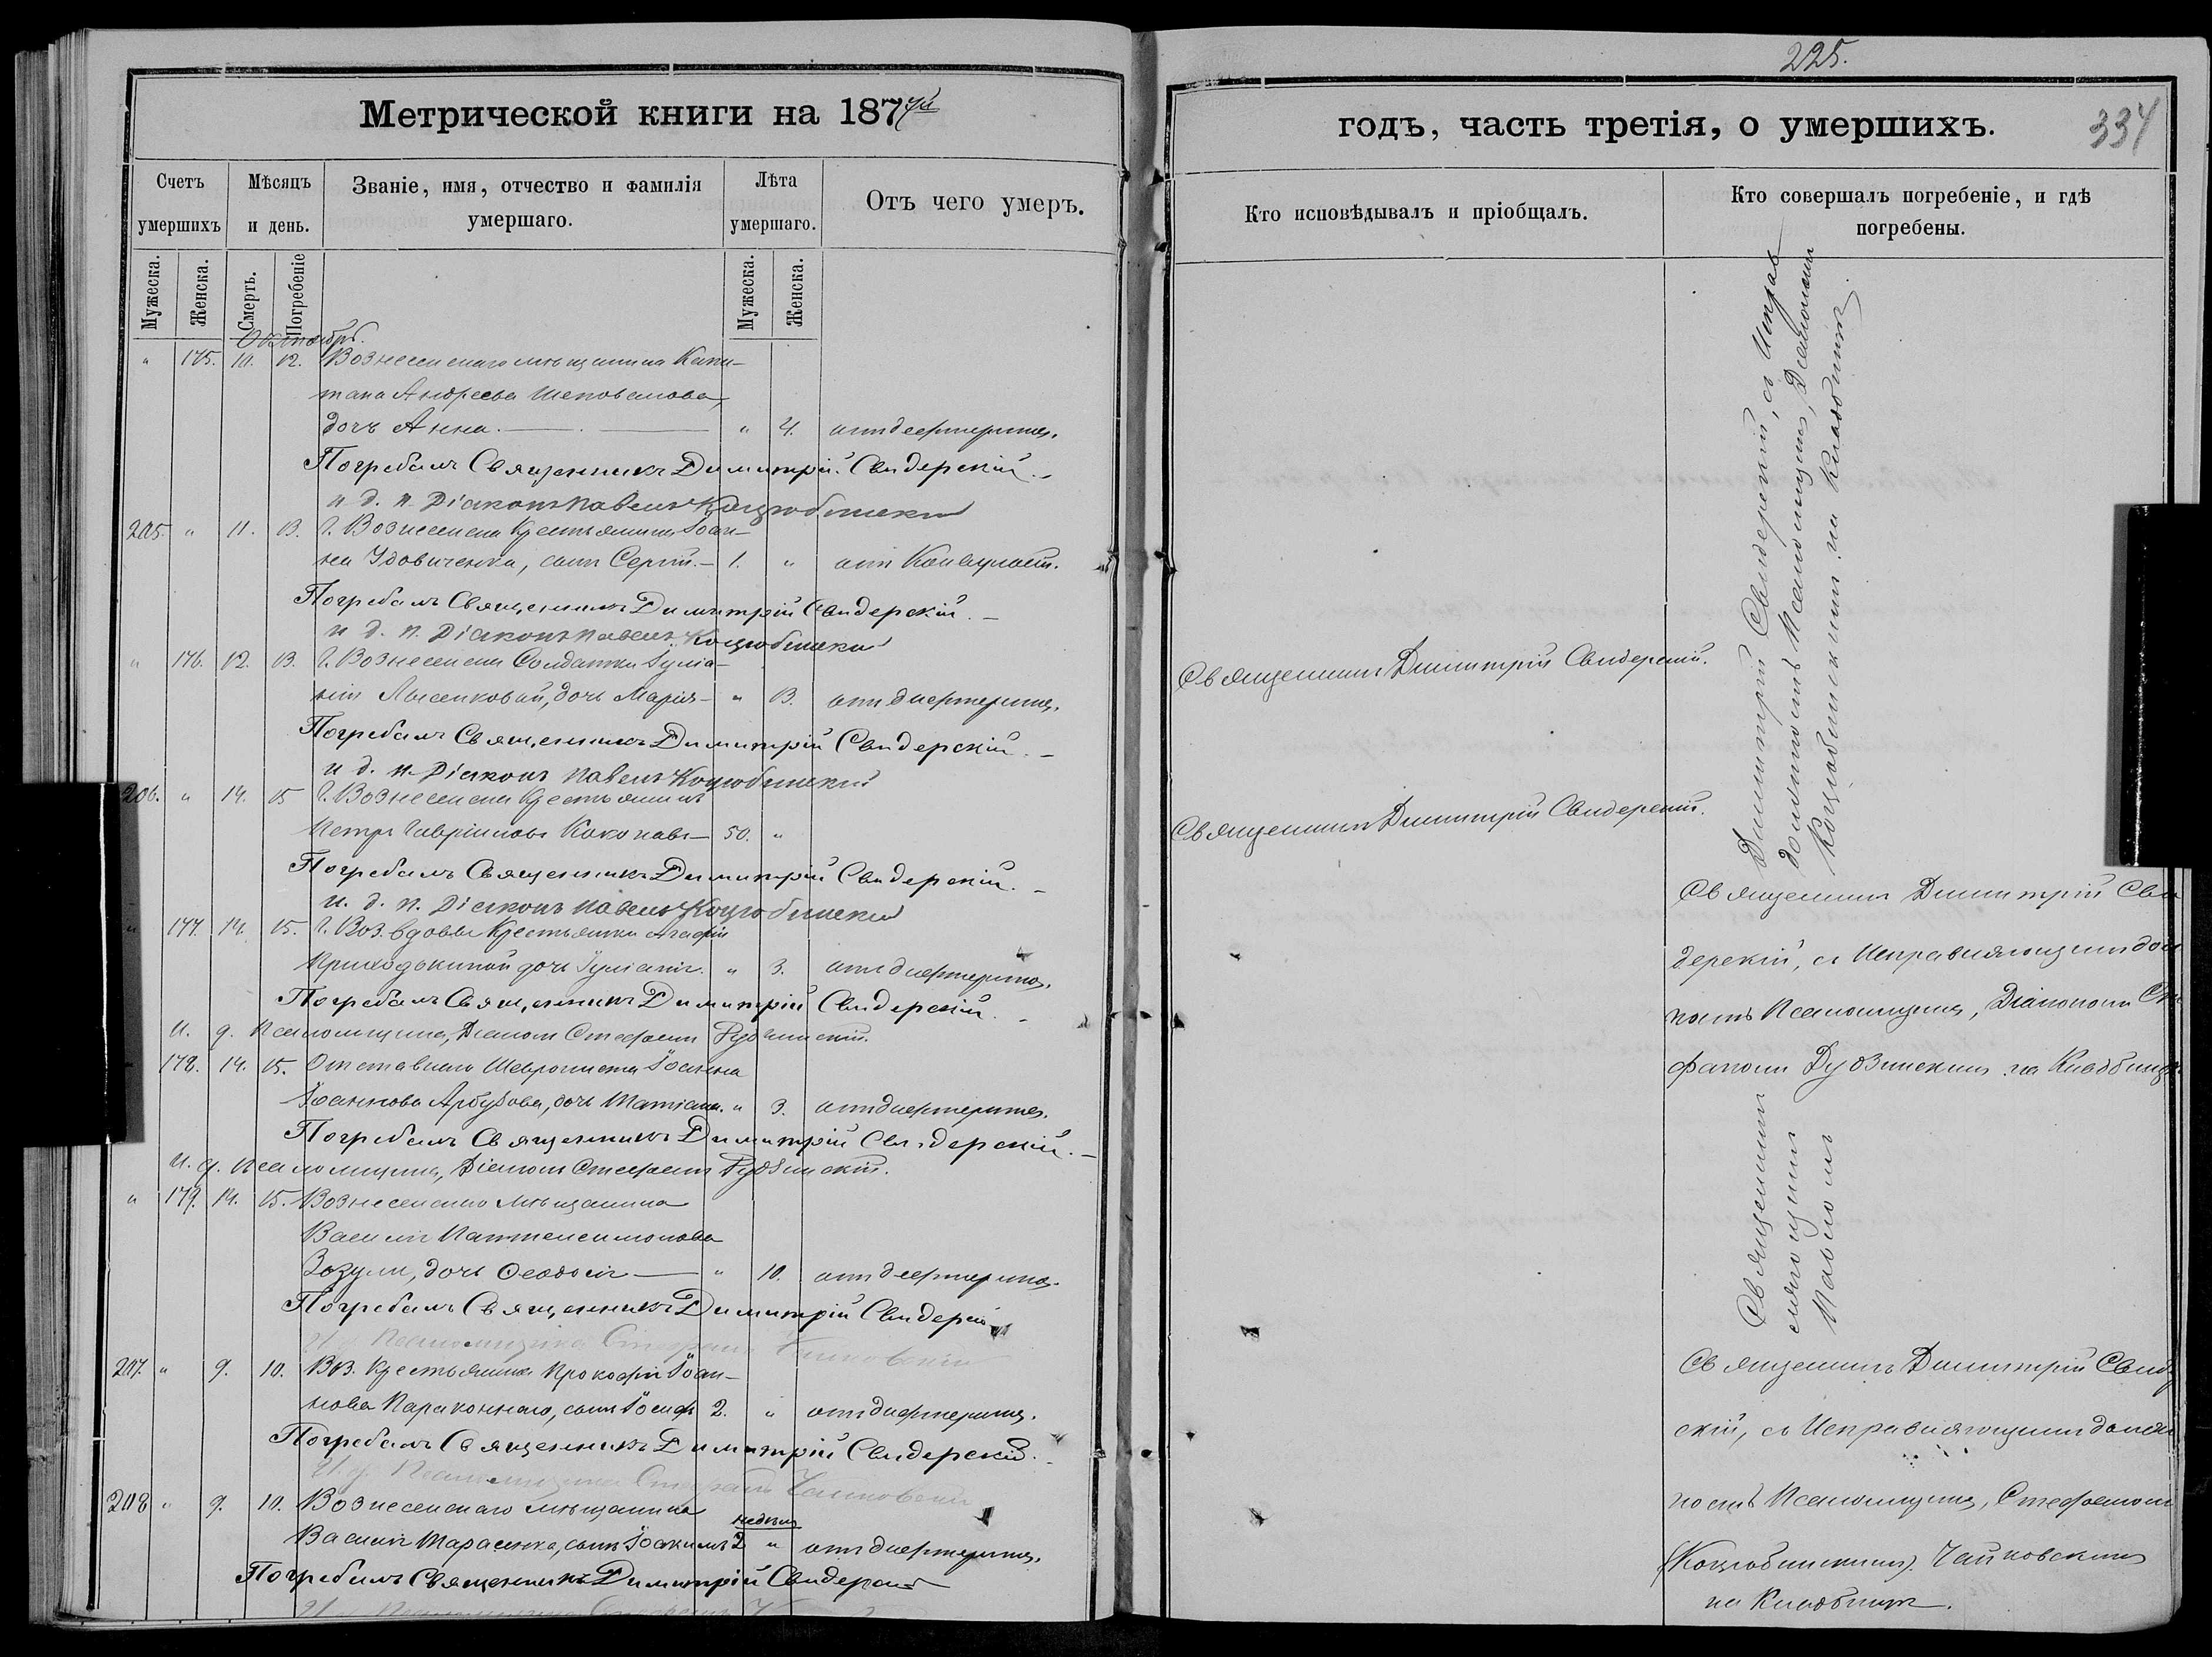 Метрической книги на 1877й
Счетъ умершихъ
Мѣсяцъ и день.
Званіе, имя, отчество и фамилія умершаго.
Лѣта умершаго.
Отъ чего умеръ.
Мужеска.
Женска.
Смерть.
Погребеніе
Мужеска.
Женска.
Октябрь.
" 175. 10. 12. Вознесенскаго мѣщанина Капи-
тана Андреева
дочь Анна. " 4. отъ дефтерита.
Погребалъ Священникъ Димитрій Свидерскій.
и д. п. Діаконъ Павелъ Коцюбинскій
205. " 11. 13. Г. Вознесенска Крестьянина Іоан-
на Удовиченка, сынъ Сергій. 1. " отъ Конвульсій.
Погребалъ Священникъ Димитрій Свидерскій.
и д. п. Діаконъ Павелъ Коцюбинскій
" 176. 12. 13. Г. Вознесенска Солдатки Іуліа-
ніи Лысенковой, дочь Марія " 13. отъ дифтерита.
Погребалъ Священникъ Димитрій Свидерскій.
и д. п. Діаконъ Павелъ Коцюбинскій
206. " 14. 15 Г. Вознесенска Крестьянинъ
Петръ Гавріиловъ 50. "
Погребалъ Священникъ Димитрій Свидерскій.
и. д. п. Діаконъ Павелъ Коцюбинскій
" 177. 14. 15. Г. Воз. вдовы Крестьянки Агафіи
Приходькиной дочь Іуліанія. " 3. отъ дифтерита.
Погребалъ Священникъ Димитрій Свидерскій.
И. д. Псаломщика, Діаконъ Стефанъ
178. 14. 15. Отставнаго Іоанна
Іоаннова Арбузова, дочь Татіана. " 3. отъ дифтерита.
Погребалъ Священникъ Димитрій Свидерскій.
И. д. Псаломщика, Діаконъ Стефанъ
" 179. 14. 15. Вознесенскаго мѣщанина
Василія Пантелеимонова
Зозули, дочь Феодосія " 10. отъ дефтерита.
Погребалъ Священникъ Димитрій Свидерскій
И. д. Псаломщика Стефанъ Чайковскій
207. " 9. 10. Воз. Крестьянина Прокофія Іоан-
нова сынъ Іосифъ 2. " отъ дифтерита.
Погребалъ Священникъ Димитрій Свидерскій.
И. д. Псаломщика Стефанъ Чайковскій
208 " 9. 10. Вознесенскаго мѣщанина
недѣль
Василія Тарасенка, сынъ Іоакимъ 2 " отъ дифтерита.
Погребалъ Священникъ Димитрій Свидерскій
225.
334
годъ, часть третія, о умершихъ.
Кто исповѣдывалъ и пріобщалъ.
Кто совершалъ погребеніе, и гдѣ погребены.
Священникъ Димитрій Свидерскій.
Священникъ Димитрій Свидерскій.
Димитрій Свидерскій, съ Исправ
должность Псаломщика, Діаконом
Коцюбинскимъ на Кладбищѣ.
Священникъ Димитрій Сви
дерскій, съ Исправляющимъ дол
ность Псаломщика, Діакономъ Сте
фаномъ на Кладбищѣ
Священникъ
Священникъ Димитрій Свидер
скій, съ Исправляющимъ долж
ность Псаломщика, Стефаномъ
(Коцюбинскимъ). Чайковскимъ
на Кладбищѣ.